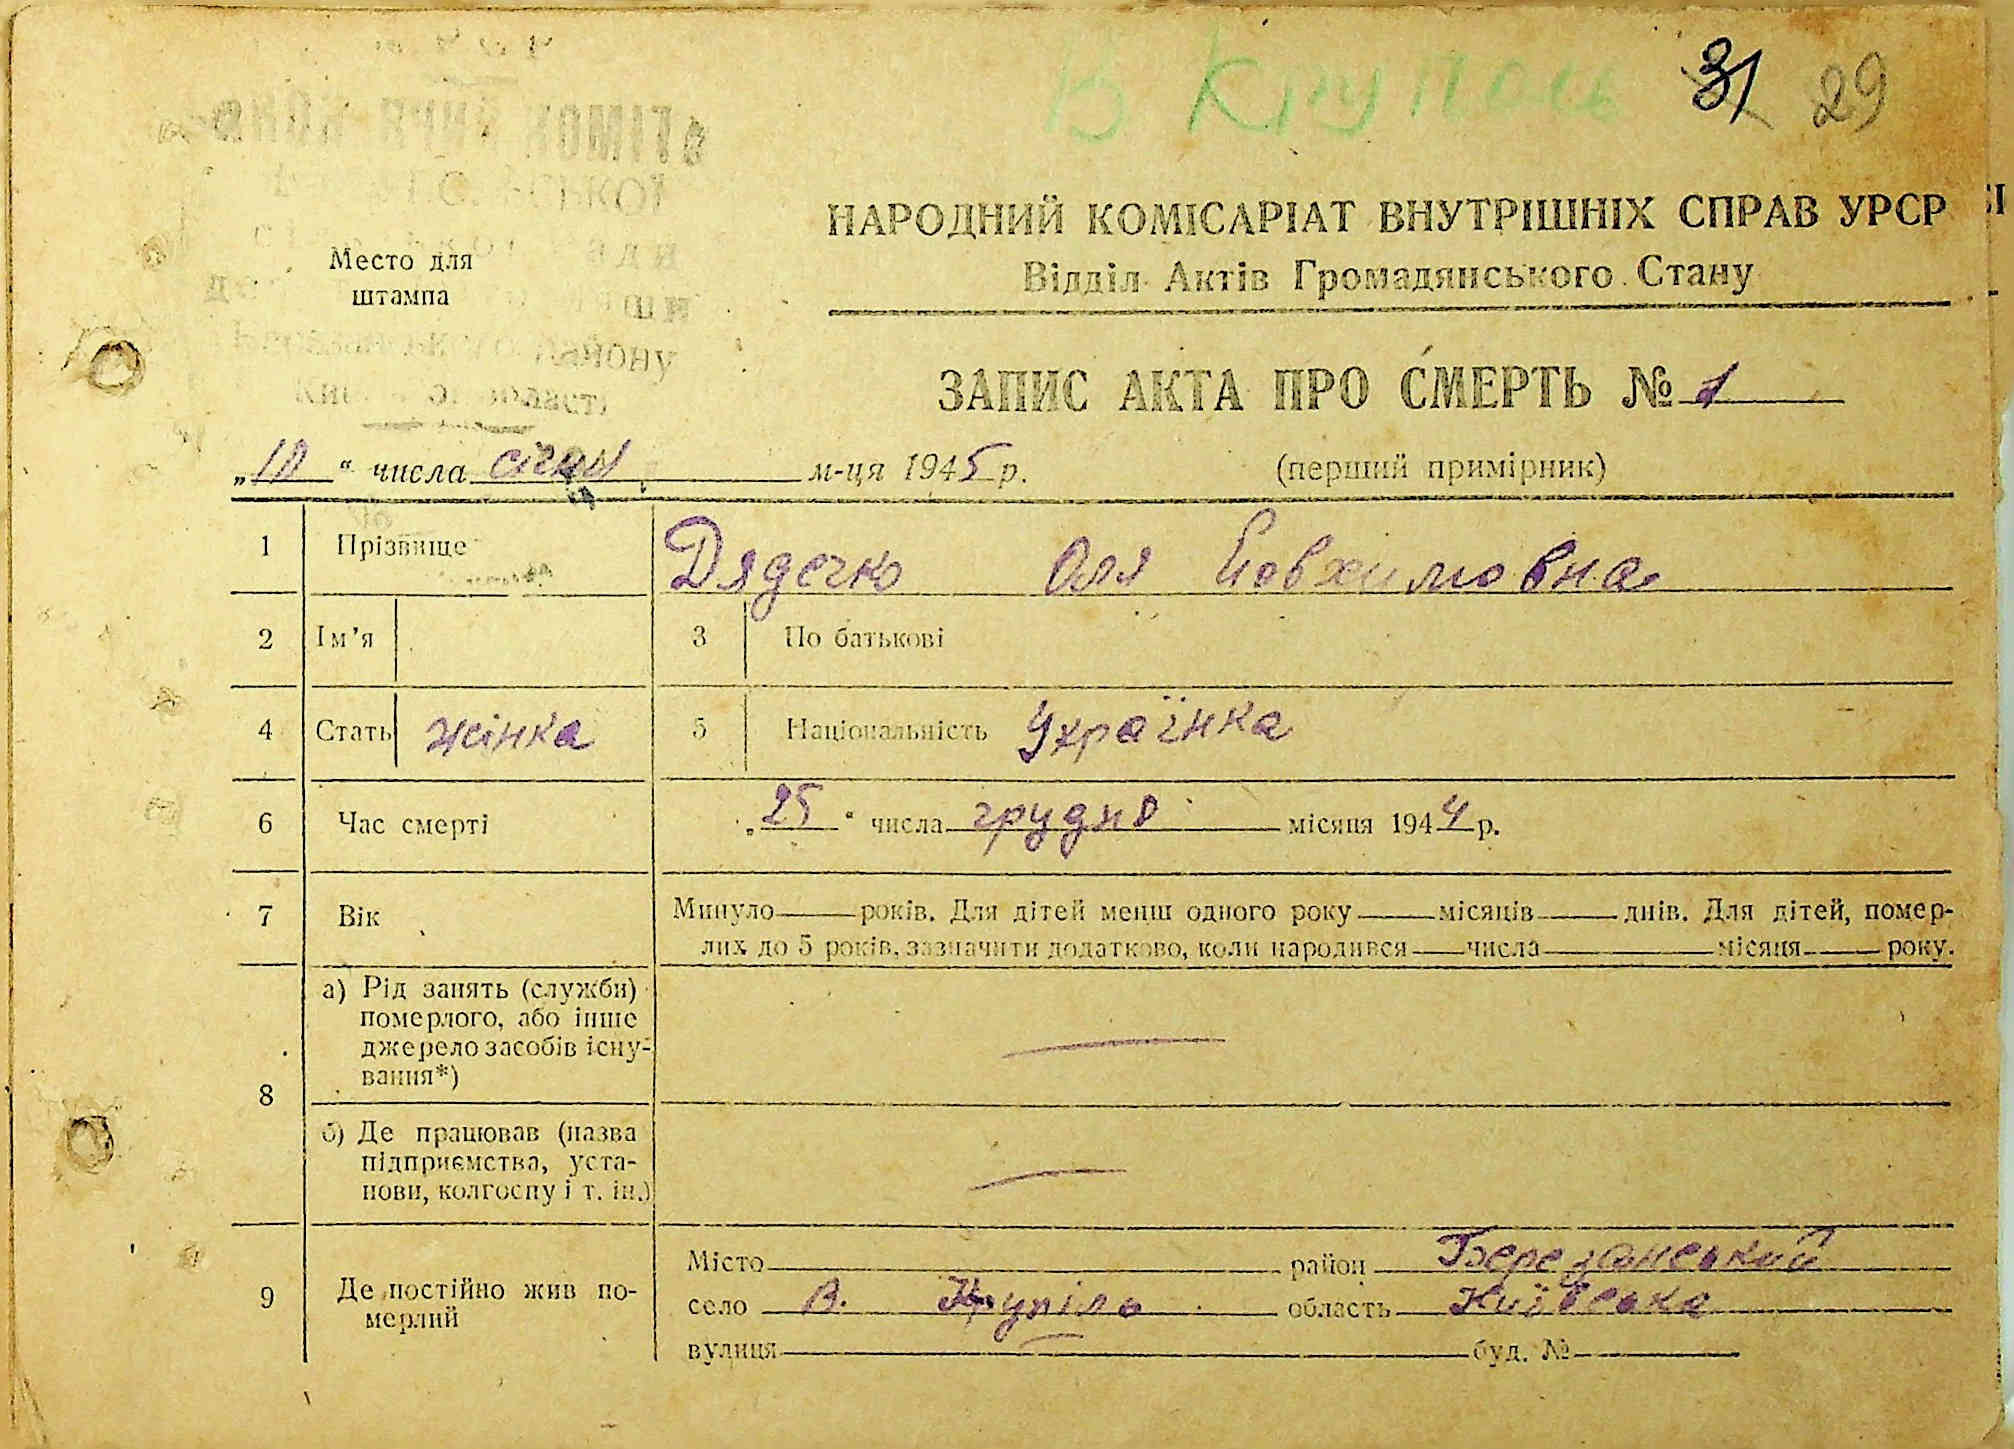 В Крупол 31 29
НАРОДНИЙ КОМІСАРІАТ ВНУТРІШНІХ СПРАВ УРСР
Відділ Актів Громадянського Стану
Место для
штампа
району
области
ЗАПИС АКТА ПРО СМЕРТЬ № 1
„10“ числа січня м-ця 1945 р. (перший примірник)
1 Прізвище Дядечко Оля Йовхимовна
2 Ім'я 3 По батькові
4 Стать жінка 5 Національність Українка
6 Час смерті „25“ числа грудня місяця 1944 р.
7 Вік Минуло років. Для дітей менш одного року місяців днів. Для дітей, помер-
лих до 5 років, зазначити додатково, коли народився числа місяця року.
8 а) Рід занять (служби)
померлого, або інше
джерело засобів існу-
вання*) —
б) Де працював (назва
підприємства, уста-
нови, колгоспу і т. ін.) —
9 Де постійно жив по-
мерлий
Місто район Березанський
село В. Крупіль область Київська
вулиця — буд. №